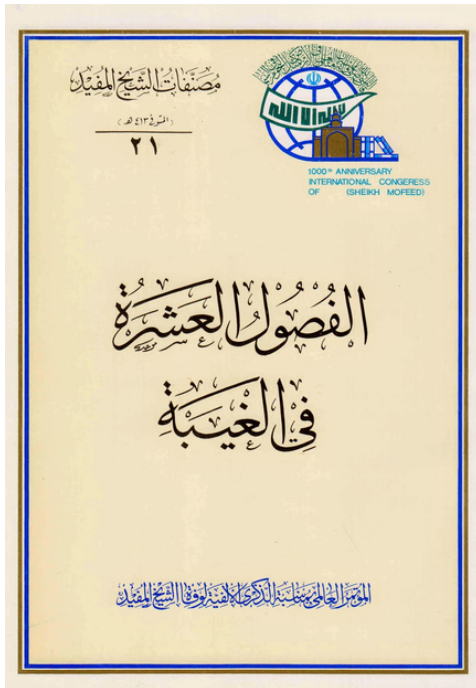 مصنفات الشيخ المفيد
(المتوفى ٤١٣ هـ)
٢١
لا إله إلا الله
1000th ANNIVERSARY
INTERNATIONAL CONGERESS
OF (SHEIKH MOFEED)
الفُصُولُ العَشَرَةُ
فِي الغَيبَةِ
المؤتمر العالمي بمناسبة الذكرى الألفية لوفاة الشيخ المفيد